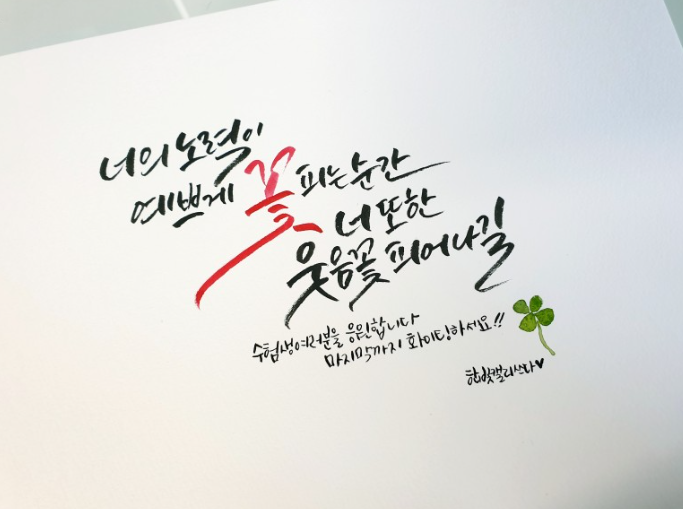 너의 노력이
예쁘게 꽃 피는 순간
너 또한
웃음꽃 피어나길
수험생여러분을 응원합니다
마지막까지 화이팅하세요!!
한빛캘리쓰다♥